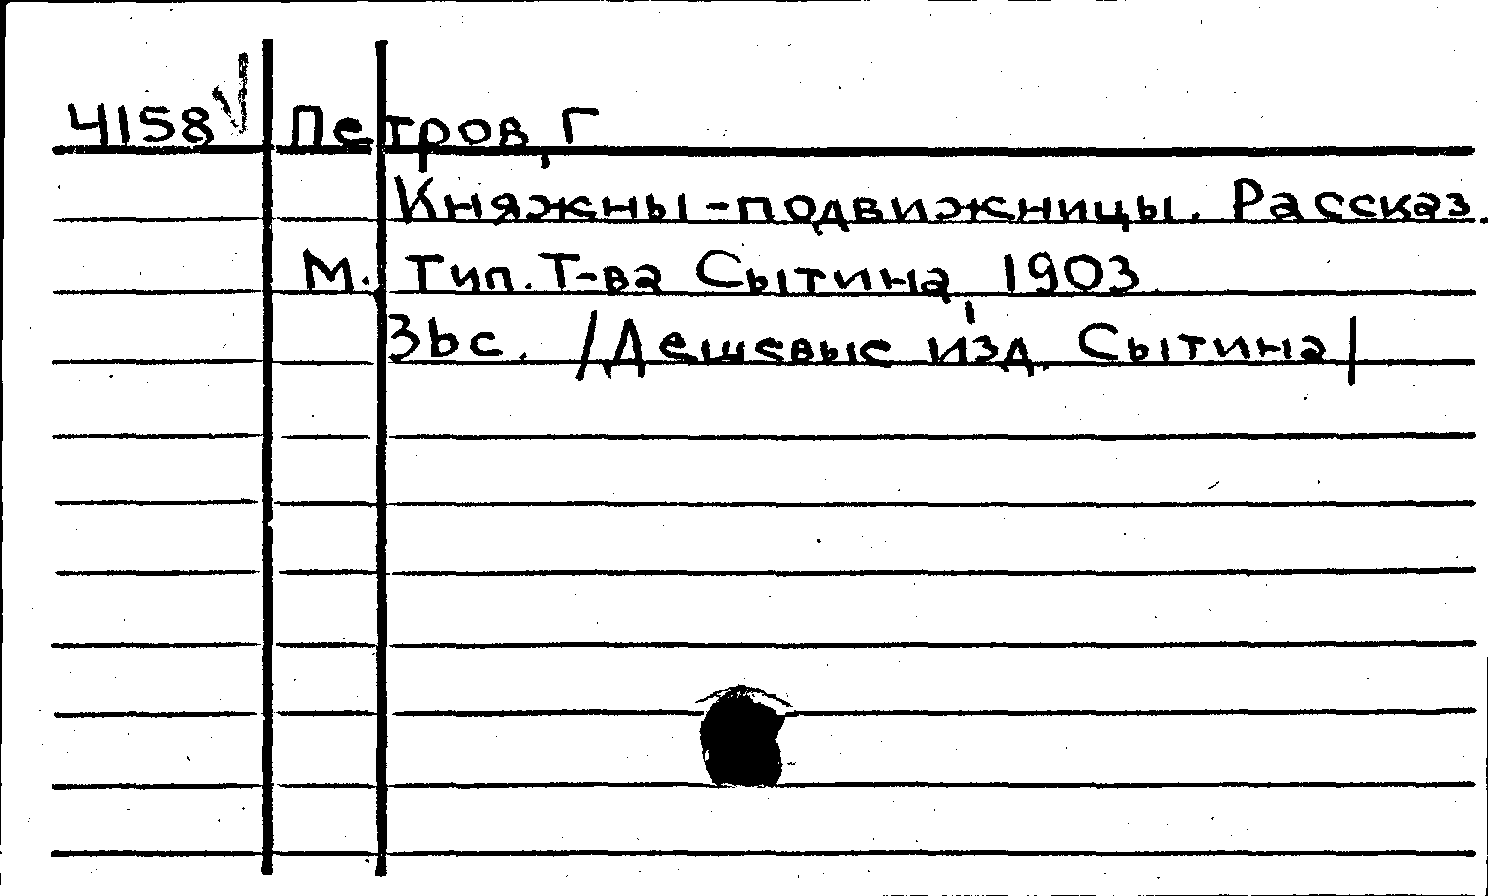 4158 Петров, Г
Княжны-подвижницы. Рассказ.
М. Тип. Т-ва Сытина, 1903.
36с. /Дешевые изд. Сытина/